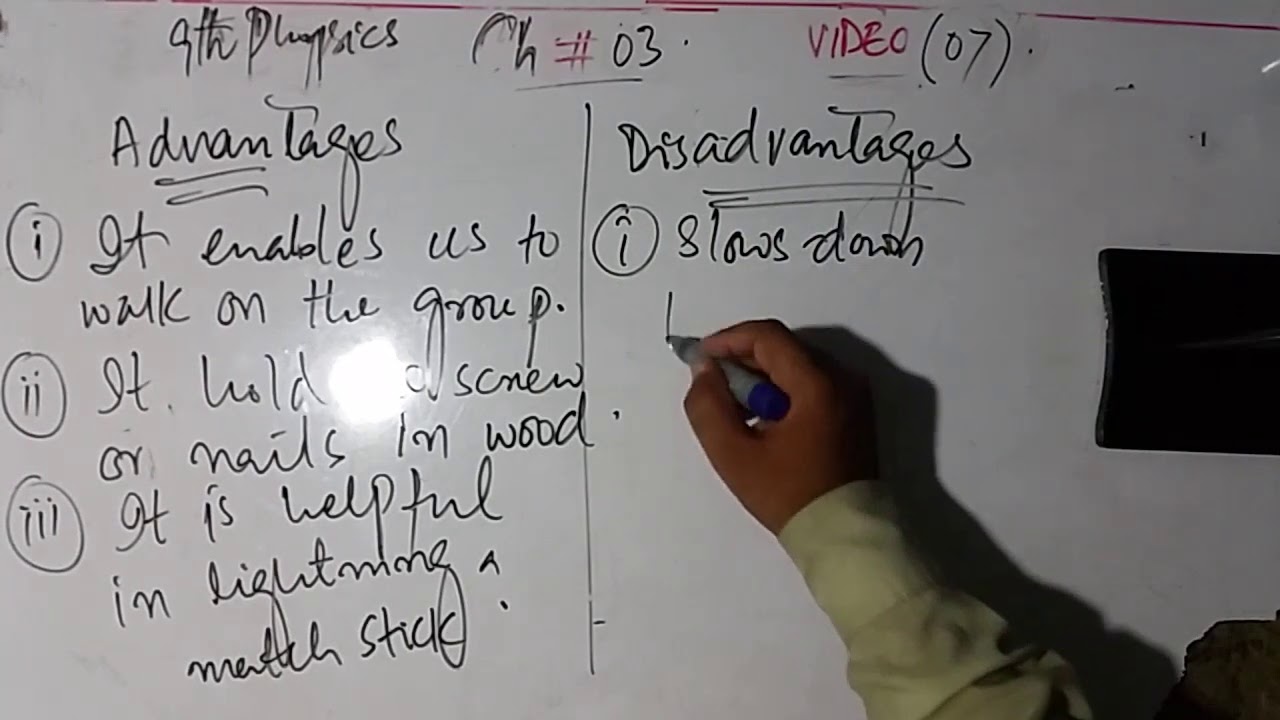 9th Physics Ch # 03. VIDEO (07).
Advantages
i It enables us to
walk on the group.
ii It. hold a screw
or nails in wood.
iii It is helpful
in lightning a
match stick.
Disadvantages
i Slows down